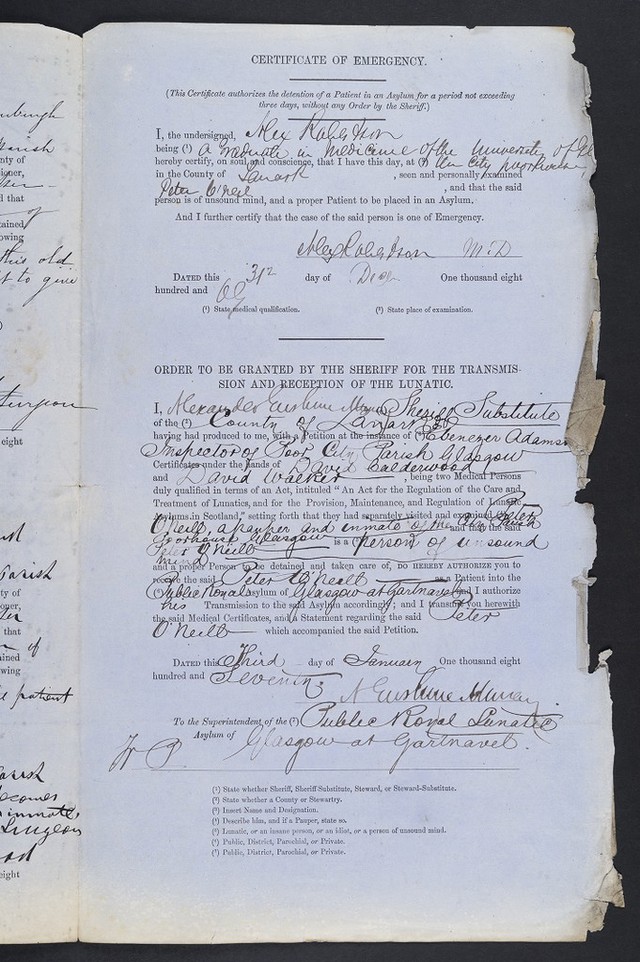 nburgh
arish
nty of
ioner,
d that
tained
owing
this old
t to give
Surgeon
eight
arish
ty of
oner,
that
ined
wing
patient
arish
becomes
inmate
Surgeon
eight
CERTIFICATE OF EMERGENCY.
(This Certificate authorizes the detention of a Patient in an Asylum for a period not exceeding
three days, without any Order by the Sheriff.)
I, the undersigned, Alex Robertson
being (¹) a Graduate in Medicine of the University of Gl
hereby certify, on soul and conscience, that I have this day, at (²) the City poorhouse
in the County of Lanark , seen and personally examined
Peter O'neil , and that the said
person is of unsound mind, and a proper Patient to be placed in an Asylum.
And I further certify that the case of the said person is one of Emergency.
Alex Robertson M.D
DATED this 31st day of Decr One thousand eight
hundred and 69
(¹) State medical qualification. (²) State place of examination.
ORDER TO BE GRANTED BY THE SHERIFF FOR THE TRANSMIS-
SION AND RECEPTION OF THE LUNATIC.
I, Alexander Erskine Murray Sheriff Substitute
of the (²) County of Lanark
having had produced to me, with a Petition at the instance of (³) Ebenezer Adamson
Inspector of Poor City Parish Glasgow
Certificates under the hands of David Calderwood
and David Walker , being two Medical Persons
duly qualified in terms of an Act, intituled “An Act for the Regulation of the Care and
Treatment of Lunatics, and for the Provision, Maintenance, and Regulation of Lunatic
Asylums in Scotland,” setting forth that they had separately visited and examined Peter
O'Neill, a pauper and inmate of the City Parish and that the said
Poorhouse Glasgow
Peter O'Neill is a (⁵) person of unsound
mind
and a proper Person to be detained and taken care of, DO HEREBY AUTHORIZE you to
receive the said Peter O'Neill as a Patient into the
Public Royal Asylum of Glasgow at Gartnavel and I authorize
his Transmission to the said Asylum accordingly; and I transmit you herewith
the said Medical Certificates, and a Statement regarding the said Peter
O'Neill which accompanied the said Petition.
DATED this Third day of January One thousand eight
hundred and Seventy.
A Erskine Murray
To the Superintendent of the (⁷) Public Royal Lunatic
Asylum of Glasgow at Gartnavel.
(¹) State whether Sheriff, Sheriff-Substitute, Steward, or Steward-Substitute.
(²) State whether a County or Stewartry.
(³) Insert Name and Designation.
(⁴) Describe him, and if a Pauper, state so.
(⁵) Lunatic, or an insane person, or an idiot, or a person of unsound mind.
(⁶) Public, District, Parochial, or Private.
(⁷) Public, District, Parochial, or Private.